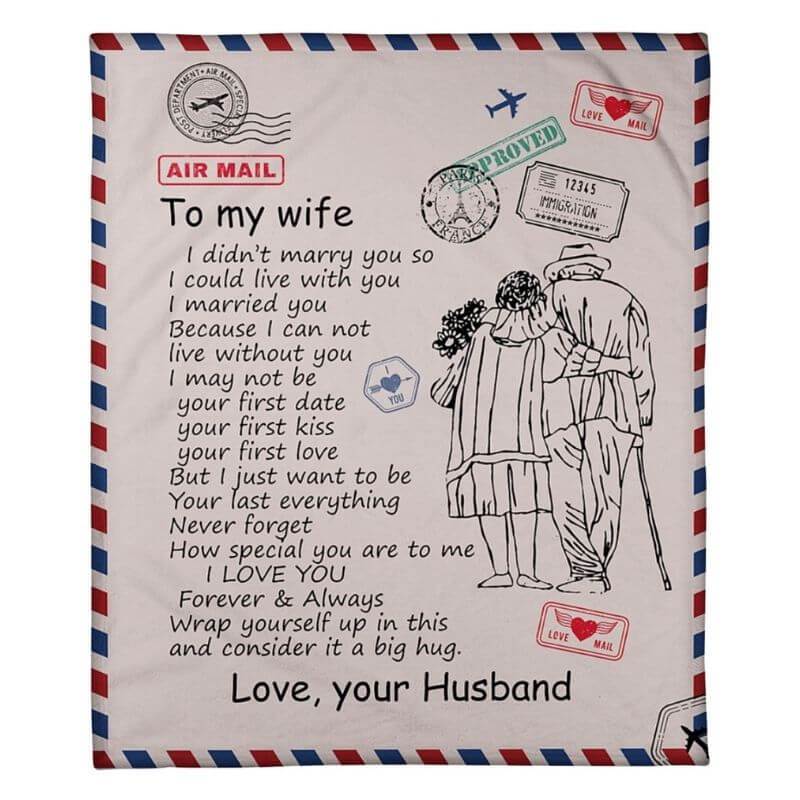 POST DEPARTMENT • AIR MAIL • SPECIAL DELIVERY •
AIR MAIL
LOVE MAIL
APPROVED
PARIS
FRANCE
12345
IMMIGRATION
To my wife
I didn't marry you so
I could live with you
I married you
Because I can not
live without you
I may not be
your first date
your first kiss
your first love
But I just want to be
Your last everything
Never forget
How special you are to me
I LOVE YOU
Forever & Always
Wrap yourself up in this
and consider it a big hug.
I
YOU
LOVE MAIL
Love, your Husband